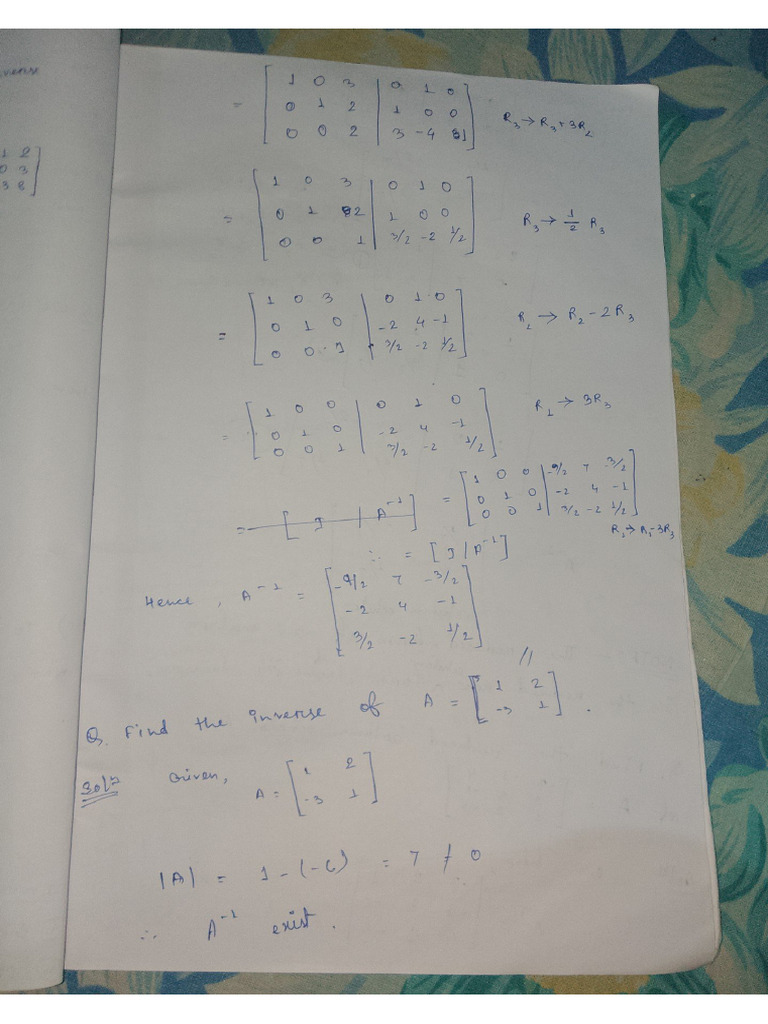 verse
1 2]
0 3
3 8]
= [ 1 0 3 | 0 1 0
0 1 2 | 1 0 0
0 0 2 | 3 -4 1 ] R₃ → R₃ + 3R₂
= [ 1 0 3 | 0 1 0
0 1 2 | 1 0 0
0 0 1 | 3/2 -2 1/2 ] R₃ → 1/2 R₃
= [ 1 0 3 | 0 1 0
0 1 0 | -2 4 -1
0 0 1 | 3/2 -2 1/2 ] R₂ → R₂ - 2R₃
= [ 1 0 0 | 0 1 0
0 1 0 | -2 4 -1
0 0 1 | 3/2 -2 1/2 ] R₁ → 3R₃
= [ I | A⁻¹ ]
= [ 1 0 0 | -9/2 7 -3/2
0 1 0 | -2 4 -1
0 0 1 | 3/2 -2 1/2 ]
R₁ → R₁ - 3R₃
∴ = [ I | A⁻¹ ]
Hence, A⁻¹ = [ -9/2 7 -3/2
-2 4 -1
3/2 -2 1/2 ] //
Q. Find the inverse of A = [ 1 2
-3 1 ].
Solⁿ Given, A = [ 1 2
-3 1 ]
|A| = 1 - (-6) = 7 ≠ 0
∴ A⁻¹ exist.